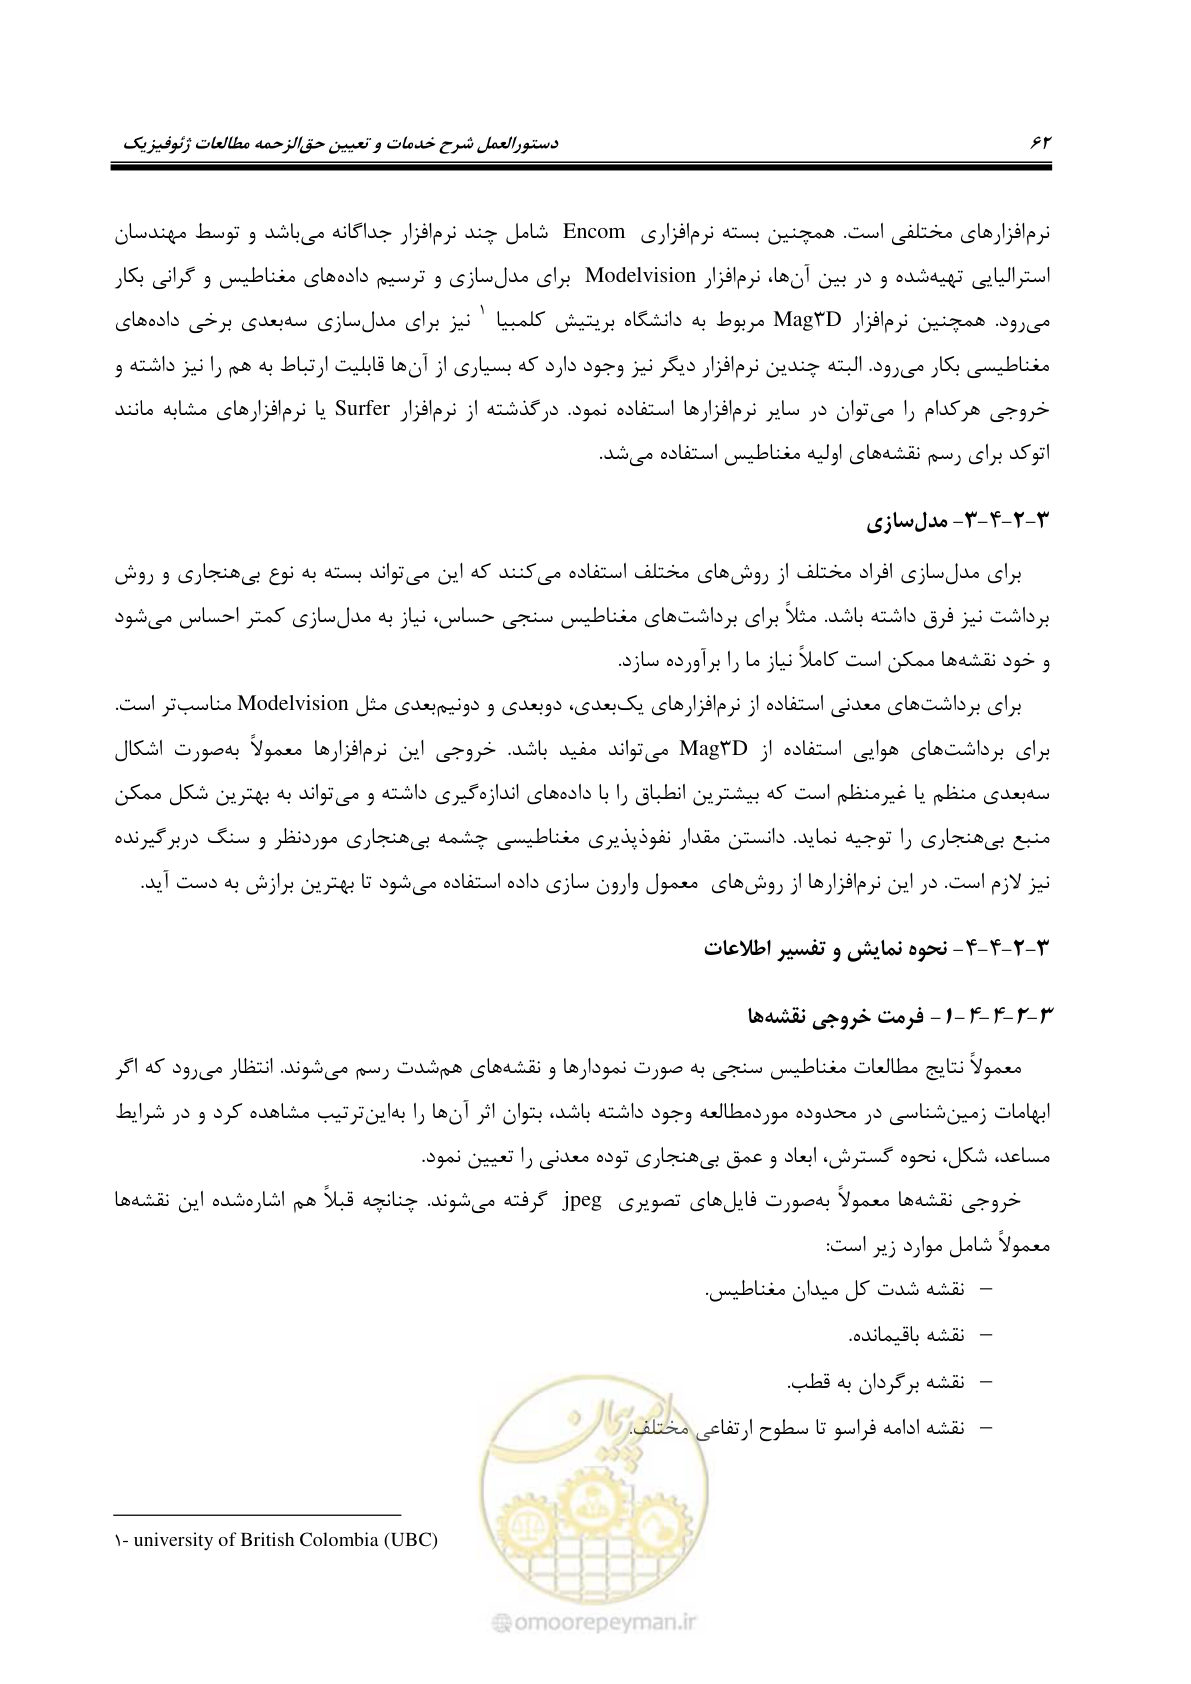 ۶۲
دستورالعمل شرح خدمات و تعیین حق‌الزحمه مطالعات ژئوفیزیک
نرم‌افزارهای مختلفی است. همچنین بسته نرم‌افزاری Encom شامل چند نرم‌افزار جداگانه می‌باشد و توسط مهندسان
استرالیایی تهیه‌شده و در بین آن‌ها، نرم‌افزار Modelvision برای مدل‌سازی و ترسیم داده‌های مغناطیس و گرانی بکار
می‌رود. همچنین نرم‌افزار Mag۳D مربوط به دانشگاه بریتیش کلمبیا ۱ نیز برای مدل‌سازی سه‌بعدی برخی داده‌های
مغناطیسی بکار می‌رود. البته چندین نرم‌افزار دیگر نیز وجود دارد که بسیاری از آن‌ها قابلیت ارتباط به هم را نیز داشته و
خروجی هرکدام را می‌توان در سایر نرم‌افزارها استفاده نمود. درگذشته از نرم‌افزار Surfer یا نرم‌افزارهای مشابه مانند
اتوکد برای رسم نقشه‌های اولیه مغناطیس استفاده می‌شد.
۳-۲-۴-۳- مدل‌سازی
برای مدل‌سازی افراد مختلف از روش‌های مختلف استفاده می‌کنند که این می‌تواند بسته به نوع بی‌هنجاری و روش
برداشت نیز فرق داشته باشد. مثلاً برای برداشت‌های مغناطیس سنجی حساس، نیاز به مدل‌سازی کمتر احساس می‌شود
و خود نقشه‌ها ممکن است کاملاً نیاز ما را برآورده سازد.
برای برداشت‌های معدنی استفاده از نرم‌افزارهای یک‌بعدی، دوبعدی و دونیم‌بعدی مثل Modelvision مناسب‌تر است.
برای برداشت‌های هوایی استفاده از Mag۳D می‌تواند مفید باشد. خروجی این نرم‌افزارها معمولاً به‌صورت اشکال
سه‌بعدی منظم یا غیرمنظم است که بیشترین انطباق را با داده‌های اندازه‌گیری داشته و می‌تواند به بهترین شکل ممکن
منبع بی‌هنجاری را توجیه نماید. دانستن مقدار نفوذپذیری مغناطیسی چشمه بی‌هنجاری موردنظر و سنگ دربرگیرنده
نیز لازم است. در این نرم‌افزارها از روش‌های معمول وارون سازی داده استفاده می‌شود تا بهترین برازش به دست آید.
۳-۲-۴-۴- نحوه نمایش و تفسیر اطلاعات
۳-۲-۴-۴-۱- فرمت خروجی نقشه‌ها
معمولاً نتایج مطالعات مغناطیس سنجی به صورت نمودارها و نقشه‌های هم‌شدت رسم می‌شوند. انتظار می‌رود که اگر
ابهامات زمین‌شناسی در محدوده موردمطالعه وجود داشته باشد، بتوان اثر آن‌ها را به‌این‌ترتیب مشاهده کرد و در شرایط
مساعد، شکل، نحوه گسترش، ابعاد و عمق بی‌هنجاری توده معدنی را تعیین نمود.
خروجی نقشه‌ها معمولاً به‌صورت فایل‌های تصویری jpeg گرفته می‌شوند. چنانچه قبلاً هم اشاره‌شده این نقشه‌ها
معمولاً شامل موارد زیر است:
– نقشه شدت کل میدان مغناطیس.
– نقشه باقیمانده.
– نقشه برگردان به قطب.
– نقشه ادامه فراسو تا سطوح ارتفاعی مختلف.
امور پیمان
۱- university of British Colombia (UBC)
@omoorepeyman.ir